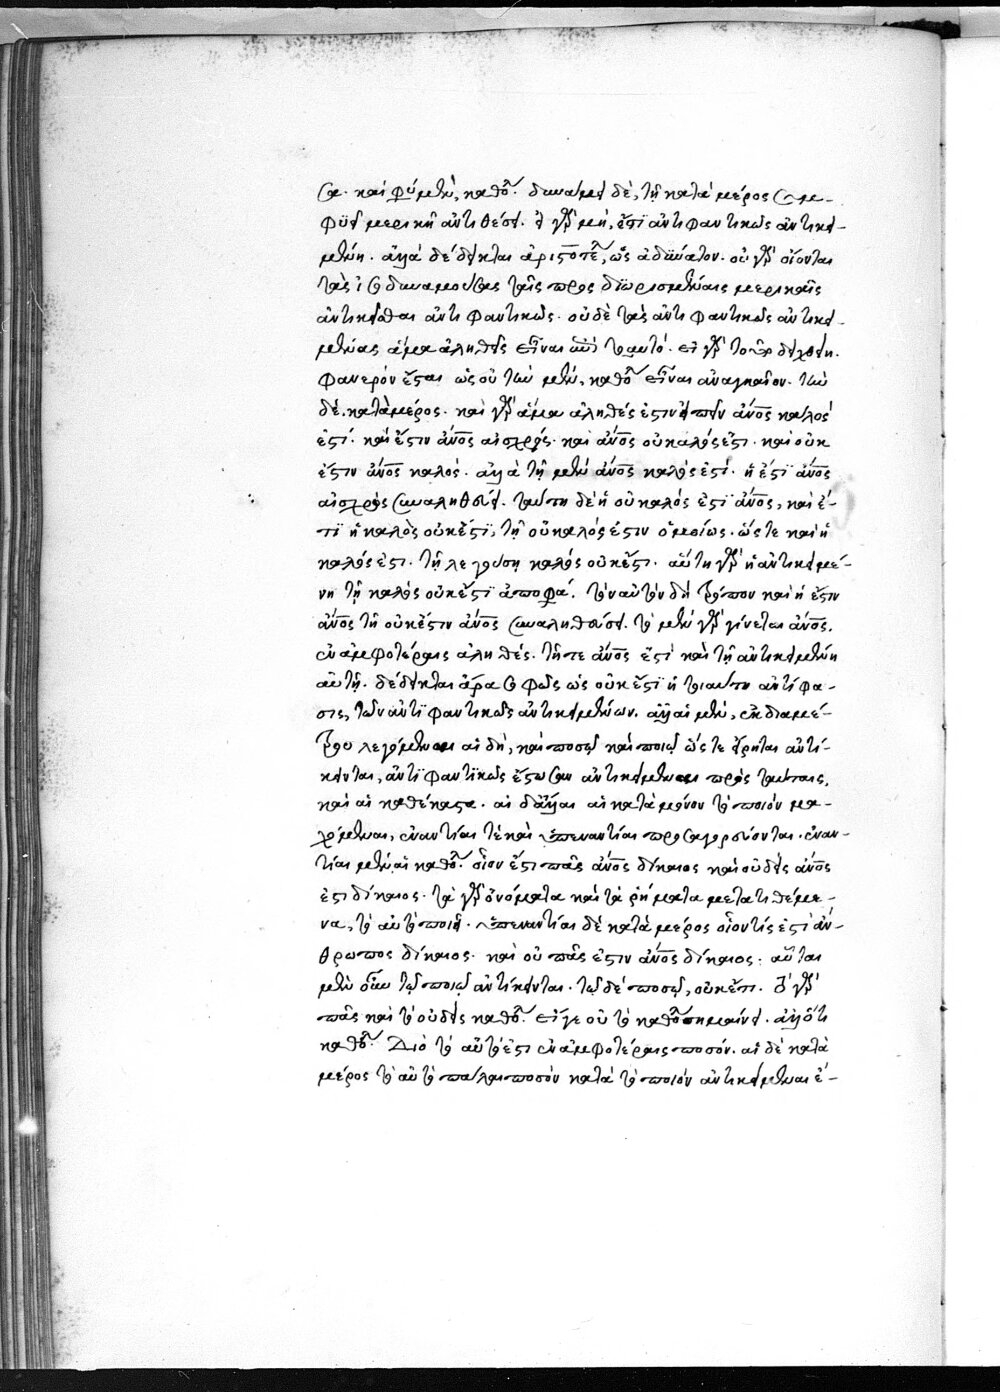 σα. καὶ φύμεν, καθό. δυναμει δὲ, τῆ κατὰ μέρος συμ-
φύει μερικῆ ἀντιθέσει. εἰ γὰρ μὴ, ἔστι ἀντιφαντικῶς ἀντικει-
μένη. ἀλλὰ δέδεικται ἀριστοτέ, ὡς ἀδύνατον. οὐ γὰρ οἴονται
τὰς ἰσοδυναμούσας ταῖς προσδιωρισμέναις μερικαῖς
ἀντικεῖσθαι ἀντιφαντικῶς. οὐδὲ τὰς ἀντιφαντικῶς ἀντικει-
μένας ἅμα ἀληθεῖς εἶναι ἐπὶ ταυτό. εἰ γὰρ τοῦτο δειχθείη.
φανερὸν ἔσται ὡς οὐ τῶν μὲν, καθό εἶναι ἀναγκαῖον. τῶν
δὲ, κατὰ μέρος. καὶ γὰρ ἅμα ἀληθές ἐστιν εἰπεῖν ἄνος καλός
ἐστί. καὶ ἔστιν ἄνος αἰσχρός. καὶ ἄνος οὐ καλός ἐστι. καὶ οὐκ
ἔστιν ἄνος καλός. ἀλλὰ τῆ μὲν ἄνος καλός ἐστί. ἡ ἐστὶ ἄνος
αἰσχρὸς συναληθεύει. ταύτη δὲ ἡ οὐ καλός ἐστὶ ἄνος, καὶ ἐ-
πὶ ἡ καλὸς οὐκ ἐστὶ, τῆ οὐ καλός ἐστιν ὁμοίως. ὥστε καὶ ἡ
καλός ἐστι. τῆ λεγούση καλός οὐκ ἔστι. αὕτη γὰρ ἡ ἀντικειμέ-
νη τῆ καλός οὐκ ἔστὶ ἀποφά. τὸν αὐτὸν δὴ τρόπον καὶ ἡ ἔστιν
ἄνος τῆ οὐκ ἔστιν ἄνος συναληθεύσει. τὸ μὲν γὰρ γίνεται ἄνος,
ἐν ἀμφοτέραις ἀληθές. τῆ τε ἄνος ἐστὶ καὶ τῆ ἀντικειμένη
αὐτῆ. δέδεικται ἄρα σοφῶς ὡς οὐκ ἐστὶ ἡ τοιαύτη ἀντίφα-
σις, τῶν ἀντιφαντικῶς ἀντικειμένων. ἀλλαὶ μὲν, ἐκ διαμέ-
τρου λεγόμεναι αἱ δὴ, καὶ ποσῷ καὶ ποιῷ ὥστε εἴρηται ἀντί-
κεινται, ἀντιφαντικῶς ἔστωσαν ἀντικείμεναι πρὸς ταύταις,
καὶ αἱ καθέκαστα. αἱ δ' ἄλλαι αἱ κατὰ μόνον τὸ ποιὸν μα-
χόμεναι, ἐναντίαι τε καὶ ὑπεναντίαι προσαγορεύονται. ἐναν-
τίαι μὲν αἱ καθό. οἷον ἔστι πᾶς ἄνος δίκαιος καὶ οὐδεὶς ἄνος
ἐστὶ δίκαιος. τὰ γὰρ ὀνόματα καὶ τὰ ῥήματα μετατιθέμε-
να, τὸ αὐτὸ ποιεῖ. ὑπεναντίαι δὲ κατὰ μέρος οἷον τίς ἐστὶ ἄν-
θρωπος δίκαιος. καὶ οὐ πᾶς ἐστιν ἄνος δίκαιος. αὗται
μὲν οὖν τῷ ποιῷ ἀντίκεινται. τῷ δὲ ποσῷ, οὐκέτι. τὸ γὰρ
πᾶς καὶ τὸ οὐδεὶς καθό. εἴγε οὐ τὸ καθό σημαίνει. ἀλλ' ὅτι
καθό. Διὸ τὸ αὐτό ἐστι ἐν ἀμφοτέραις ποσόν. αἱ δὲ κατὰ
μέρος τὸ αὐτὸ πάλαι ποσὸν κατὰ τὸ ποιόν ἀντικείμεναι ἔ-